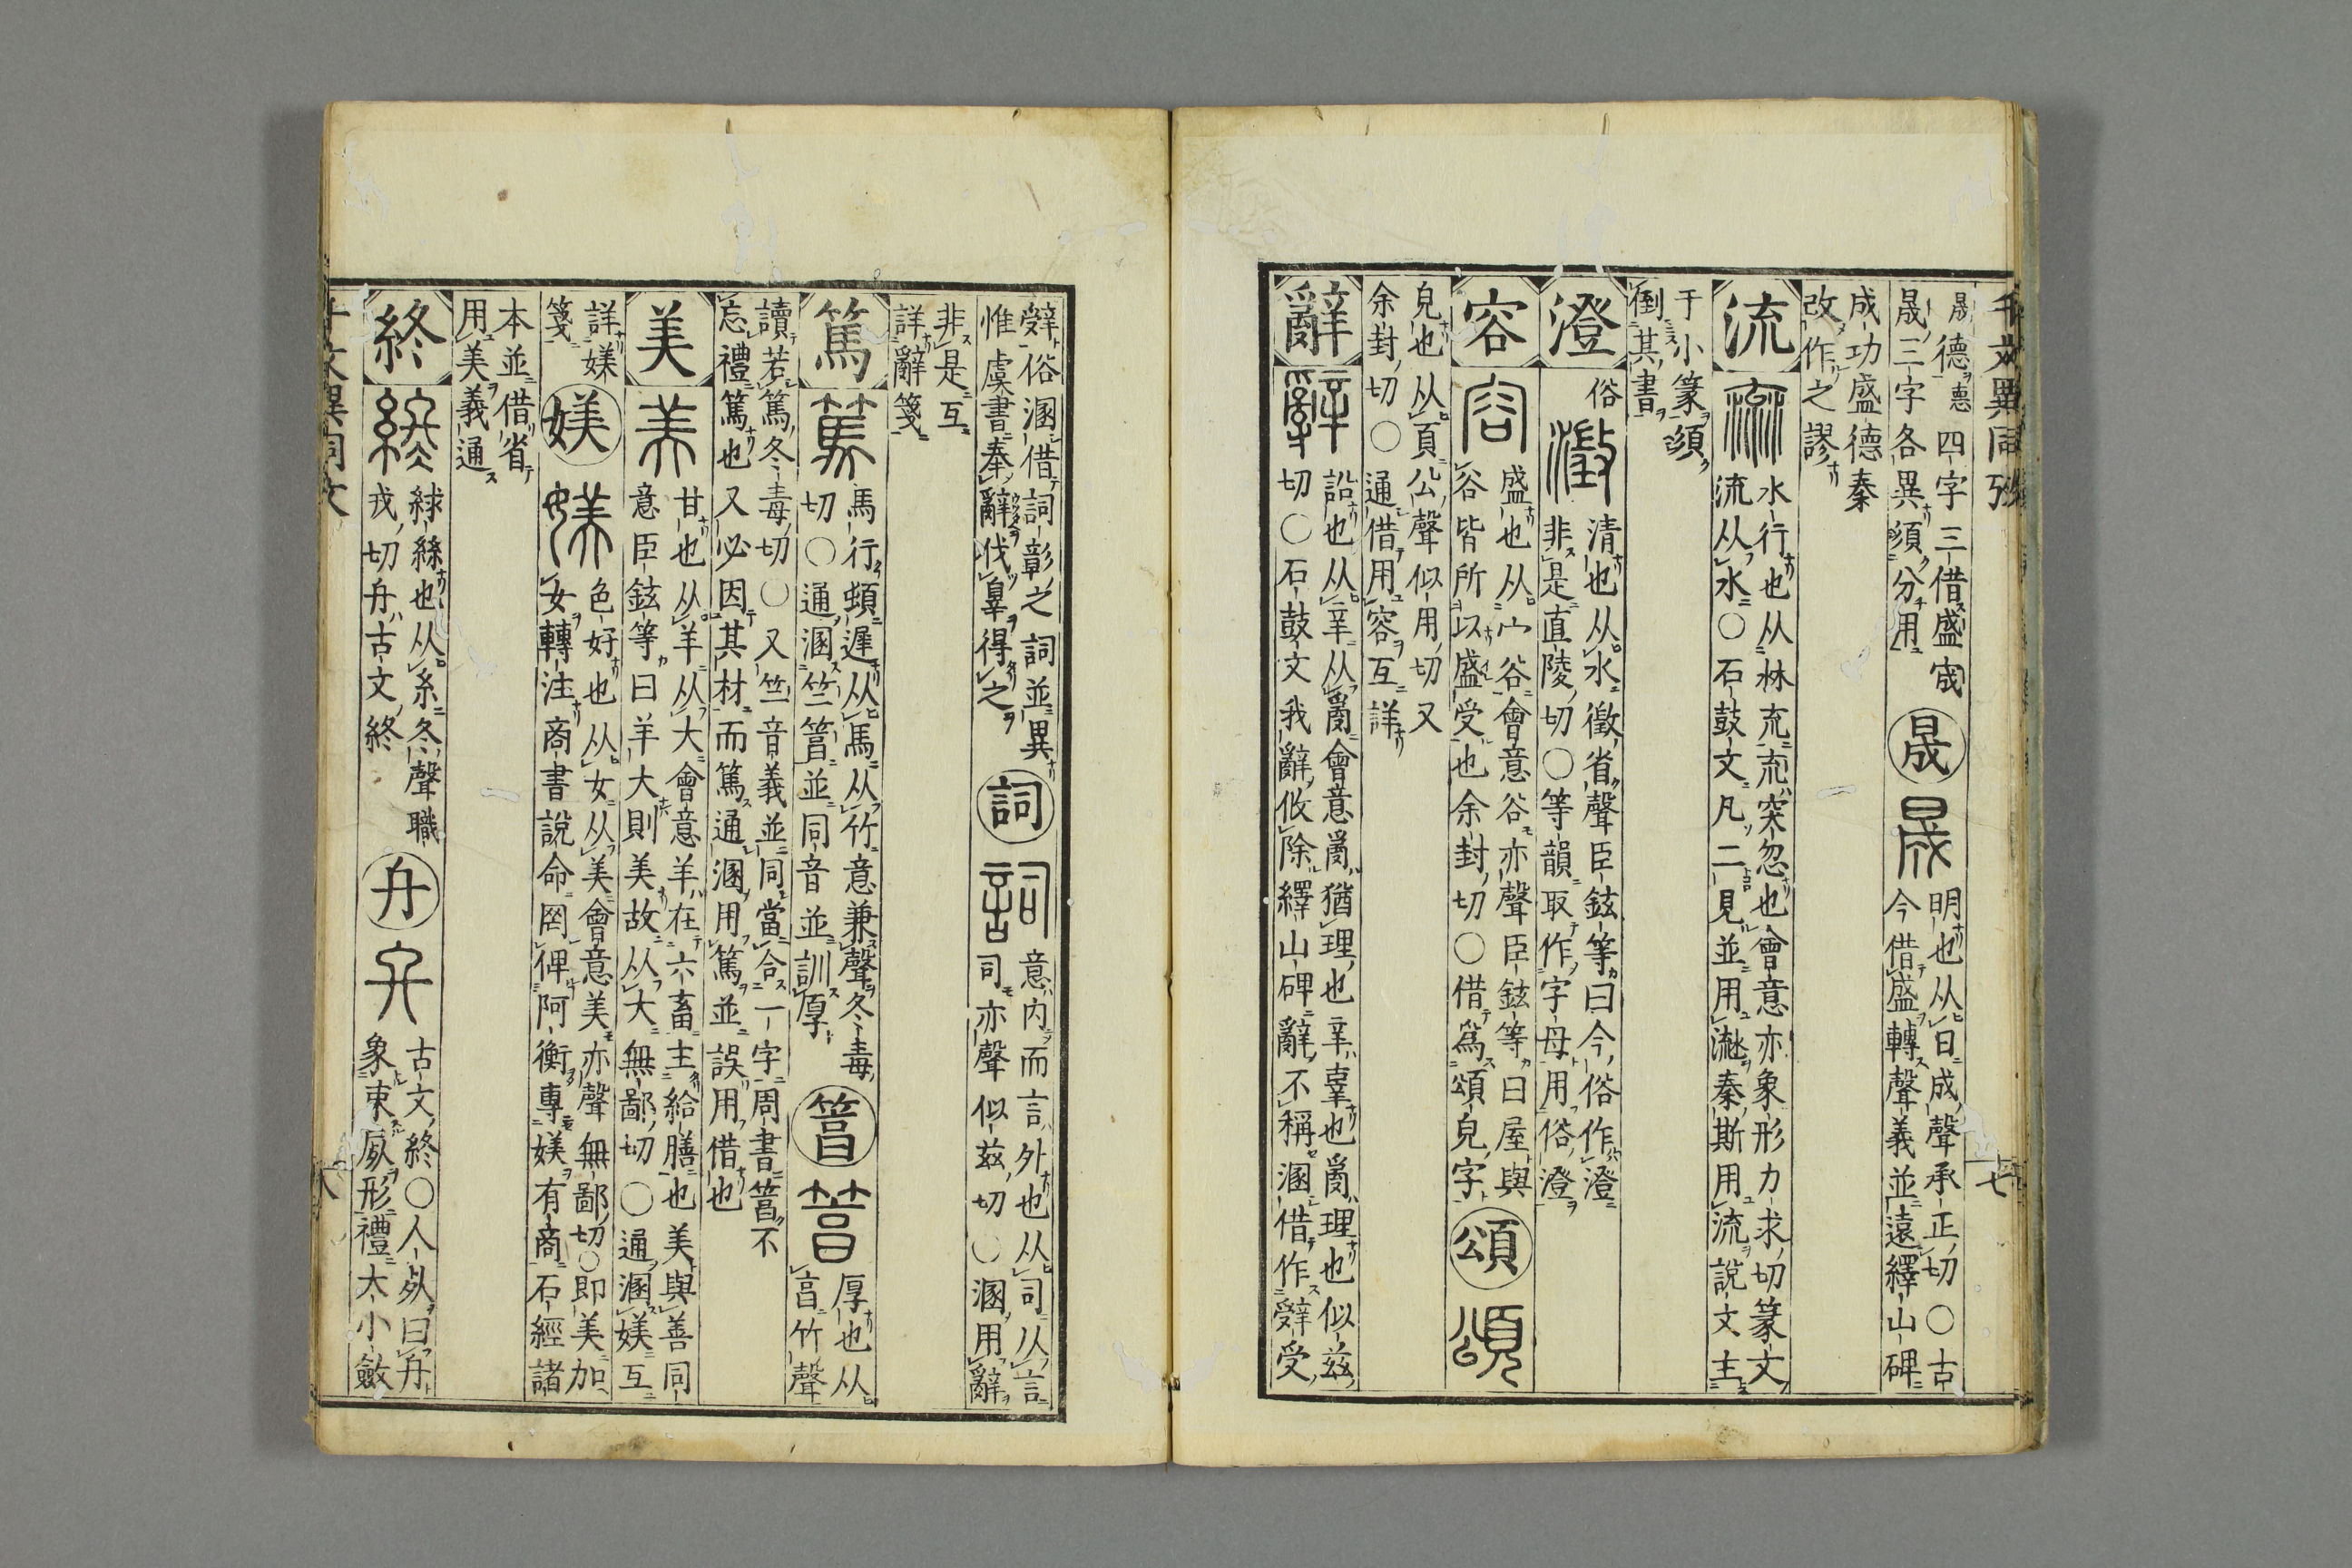 晟德悳四字三借盛宬
晟三字各異須分用
晟
明也从日成聲承正切○古
今借盛轉聲義並遠繹山碑
成功盛德秦
改作之謬
流
水行也从沝㐬㐬突忽也會意亦象形力求切篆文
流从水○石鼓文凡二見並用秦斯用流說文主
于小篆須
倒其書
澄
俗
清也从水徵省聲臣鉉等曰今俗作澄
非是直陵切○等韻取作字母用俗澄
容
盛也从宀谷會意谷亦聲臣鉉等曰屋與
谷皆所以盛受也余封切○借爲頌皃字
頌
皃也从頁公聲似用切又
余封切○通借用容互詳
辭
訟也从辛从𤔔會意𤔔猶理也辛辠也𤔔理也似兹
切○石鼓文我辭攸除繹山碑辭不稱溷借作辤受
辤俗溷借詞彰之詞並異
惟虞書奉辭伐辠得之
詞
意內而言外也从司从言
司亦聲似兹切○溷用辭
非是互
詳辭箋
篤
馬行頓遲从馬从竹意兼聲冬毒
切○通溷竺䈞並同音並訓厚
䈞
厚也从
亯竹聲
讀若篤冬毒切○又竺音義並同當合一字周書䈞不
忘禮篤也又必因其材而篤通溷用篤並誤用借也
美
甘也从羊从大會意羊在六畜主給膳也美與善同
意臣鉉等曰羊大則美故从大無鄙切○通溷媄互
詳媄
箋
媄
色好也从女从美會意美亦聲無鄙切○即美加
女轉注商書說命罔俾阿衡專媄有商石經諸
本並借省
用美義通
終
絿絲也从糸冬聲職
戎切舟古文終
古文終○人曰
象束形禮大小斂